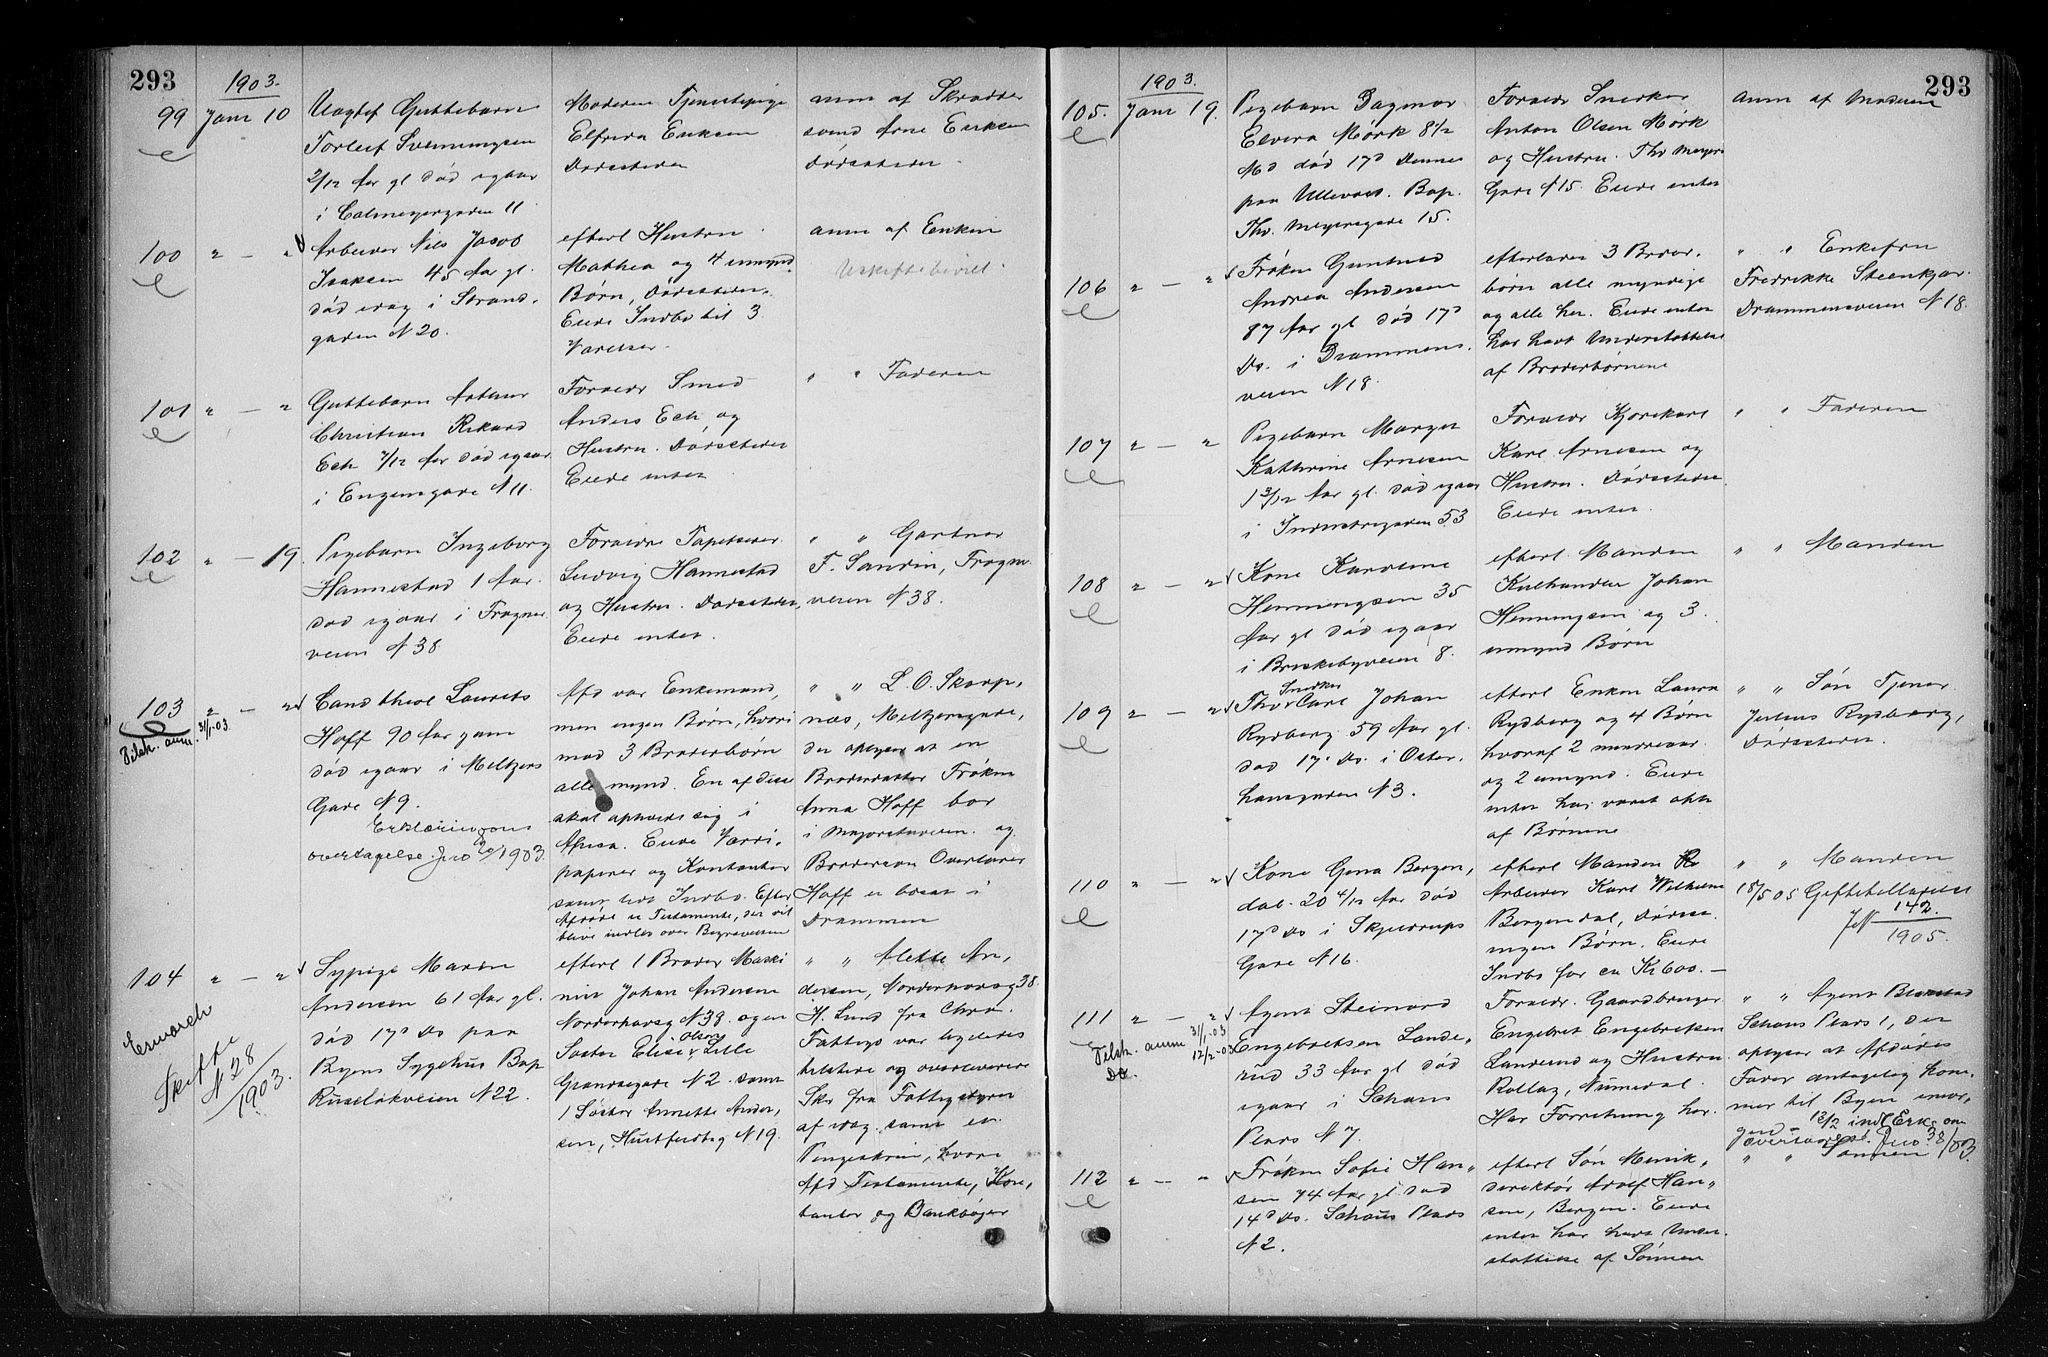 293
1903.
99 Janr 10
Uægtef Guttebarn
Torleif Svenningsen
2/12 Aar gl død igaar
i Calmeyergaden 11
Moderen Tjenestepige
Elfrida Eriksen
Dødsstedet
anm af Skrædder
svend Arne Eriksen
dødsstedet
100 " — "
Arbeider Nils Jacob
Isaksen 45 Aar gl.
død idag i Strand-
gaden N 20.
efterl Hustru
Mathea og 4 umynd.
Børn, Dødsstedet.
Eiede Indbo til 3
Værelser.
anm af Enken
Uskiftebevill.
101 " — "
Guttebarn Arthur
Christian Rikard
Eck 7/12 Aar død igaar
i Engensgade N 11.
Forældr Smed
Anders Eck og
Hustru. Dødsstedet
Eiede intet
" " Faderen
102 " — 19.
Pigebarn Ingeborg
Hannestad 1 Aar
død igaar i Frogner
veien N 38
Forældre Tapetserer
Ludvig Hannestad
og Hustru. Dødsstedet
Eiede intet.
" " Gartner
F. Sandin, Frogn.
veien N 38.
103 " — "
Tilst. anm. 31/1-03
Cand theol Laurits
Hoff 90 Aar gam
død igaar i Meltzers
Gade N 9.
Erklæring om
overtagelse Jno 20/1903.
Afd var Enkemand,
men ingen Børn, hvori
mod 3 Broderbørn
alle mynd. En af disse
skal opholde sig i
Africa. Eiede Værdi-
papirer og Kontanter
samt lidt Indbo. Efter
Afdøde er Testamente, der vil
blive indlev over Begravelsen
" " L. O. Skarp-
næs, Meltzersgade,
der oplyser at en
Broderdatter Frøken
Anna Hoff bor
i Majorstuveien og
Brodersøn Overlærer
Hoff er bosat i
Drammen
104 " — "
Skifte
N 28
1903.
Sypige Maren
Andersen 61 Aar gl.
død 17d Ds paa
Byens Sygehus Bop
Ruseløkveien N 22.
efterl 1 Broder Maski
nist Johan Andersen
Norderhovsg N 38 og en
Søster Elise Olsen Lille
Grændsegade N 2 samt
1 Søster Annette Ander-
sen, Huitfeldtsg N 19.
" " Alette An-
dersen, Norderhovsg 38.
H. Lund fra Chra.
Fattigv var ligeledes
tilstede og overleverede
Skr fra Fattigstyret
af idag samt en
Pengeskrin, hvori
Afd Testamente, Kon-
tanter og Bankbøger
293
1903.
105. Janr 19.
Pigebarn Dagmar
Elvera Mørk 8 1/2
Md død 17d Dennes
paa Ullevaal. Bop.
Thv. Meyersgade 15.
Forældr Snedker
Anton Olsen Mørk
og Hustru. Thv Meyers
Gade N 15. Eiede intet
anm af Moderen
106 " — "
Frøken Guntved
Andrea Andersen
87 Aar gl død 17d
Ds. i Drammens-
veien N 18.
efterlader 3 Broder-
børn alle myndige
og alle her. Eiede intet
har havt Understøttelse
af Broderbørnene
" " Enkefru
Fredrikke Steenkjær
Drammensveien N 18.
107 " — "
Pigebarn Margit
Kathrine Arnesen
1 3/12 Aar gl. død igaar
i Industrigaden 53
Forældr Kjørekarl
Karl Arnesen og
Hustru. Dødsstedet
Eiede intet.
" " Faderen
108 " — "
Kone Karoline
Henningsen 35
Aar gl død igaar
i Briskebyveien 8.
efterl Manden
Kulhandler Johan
Henningsen og 3
umynd Børn
" " Manden
109 " — "
Snedker
Thor Carl Johan
Rydberg 59 Aar gl.
død 17d Ds. i Oster-
hausgaden N 3.
efterl Enken Laura
Rydberg og 4 Børn
hvoraf 2 mindreaar
og 2 umynd. Eiede
intet har været
af Børnene
" " Søn Tjener
Julius Rydberg,
Dødsstedet.
110 " — "
Kone Gena Bergen-
dal 20 4/12 Aar død
17d Ds i Skjerrups
Gade N 16.
efterl Manden
Arbeider Karl Wilhelm
Bergendal, Dødsst.
ingen Børn. Eiede
Indbo for ca Kr 600. —
" " Manden
18/5 05 Giftetilladelse
142.
1905.
111 " — "
Tilst. anm 31/1-03
Do. 12/2-03
Agent Steinard
Engebretsen Lande-
rud 33 Aar gl død
igaar i Schous
Plads N 7.
Forældr. Gaardbruger
Engebret Engebretsen
Landerud og Hustru
Rollag, Numedal.
Har Forretning her.
" " Agent Blekstad
Schous Plads 1, der
oplyser at Afdødes
Fader antagelig kom-
mer til Byen imor-
gen 13/2 indl Erk. om
overtagelse Jno 38/03.
112 " — "
Frøken Sofie Han-
sen 74 Aar gl død
14d Ds. Schous Plads
N 2.
efterl Søn Musik-
direktør Adolf Han-
sen, Bergen. Eiede
intet har havt Under-
støttelse af Sønnen
" " Sønnen